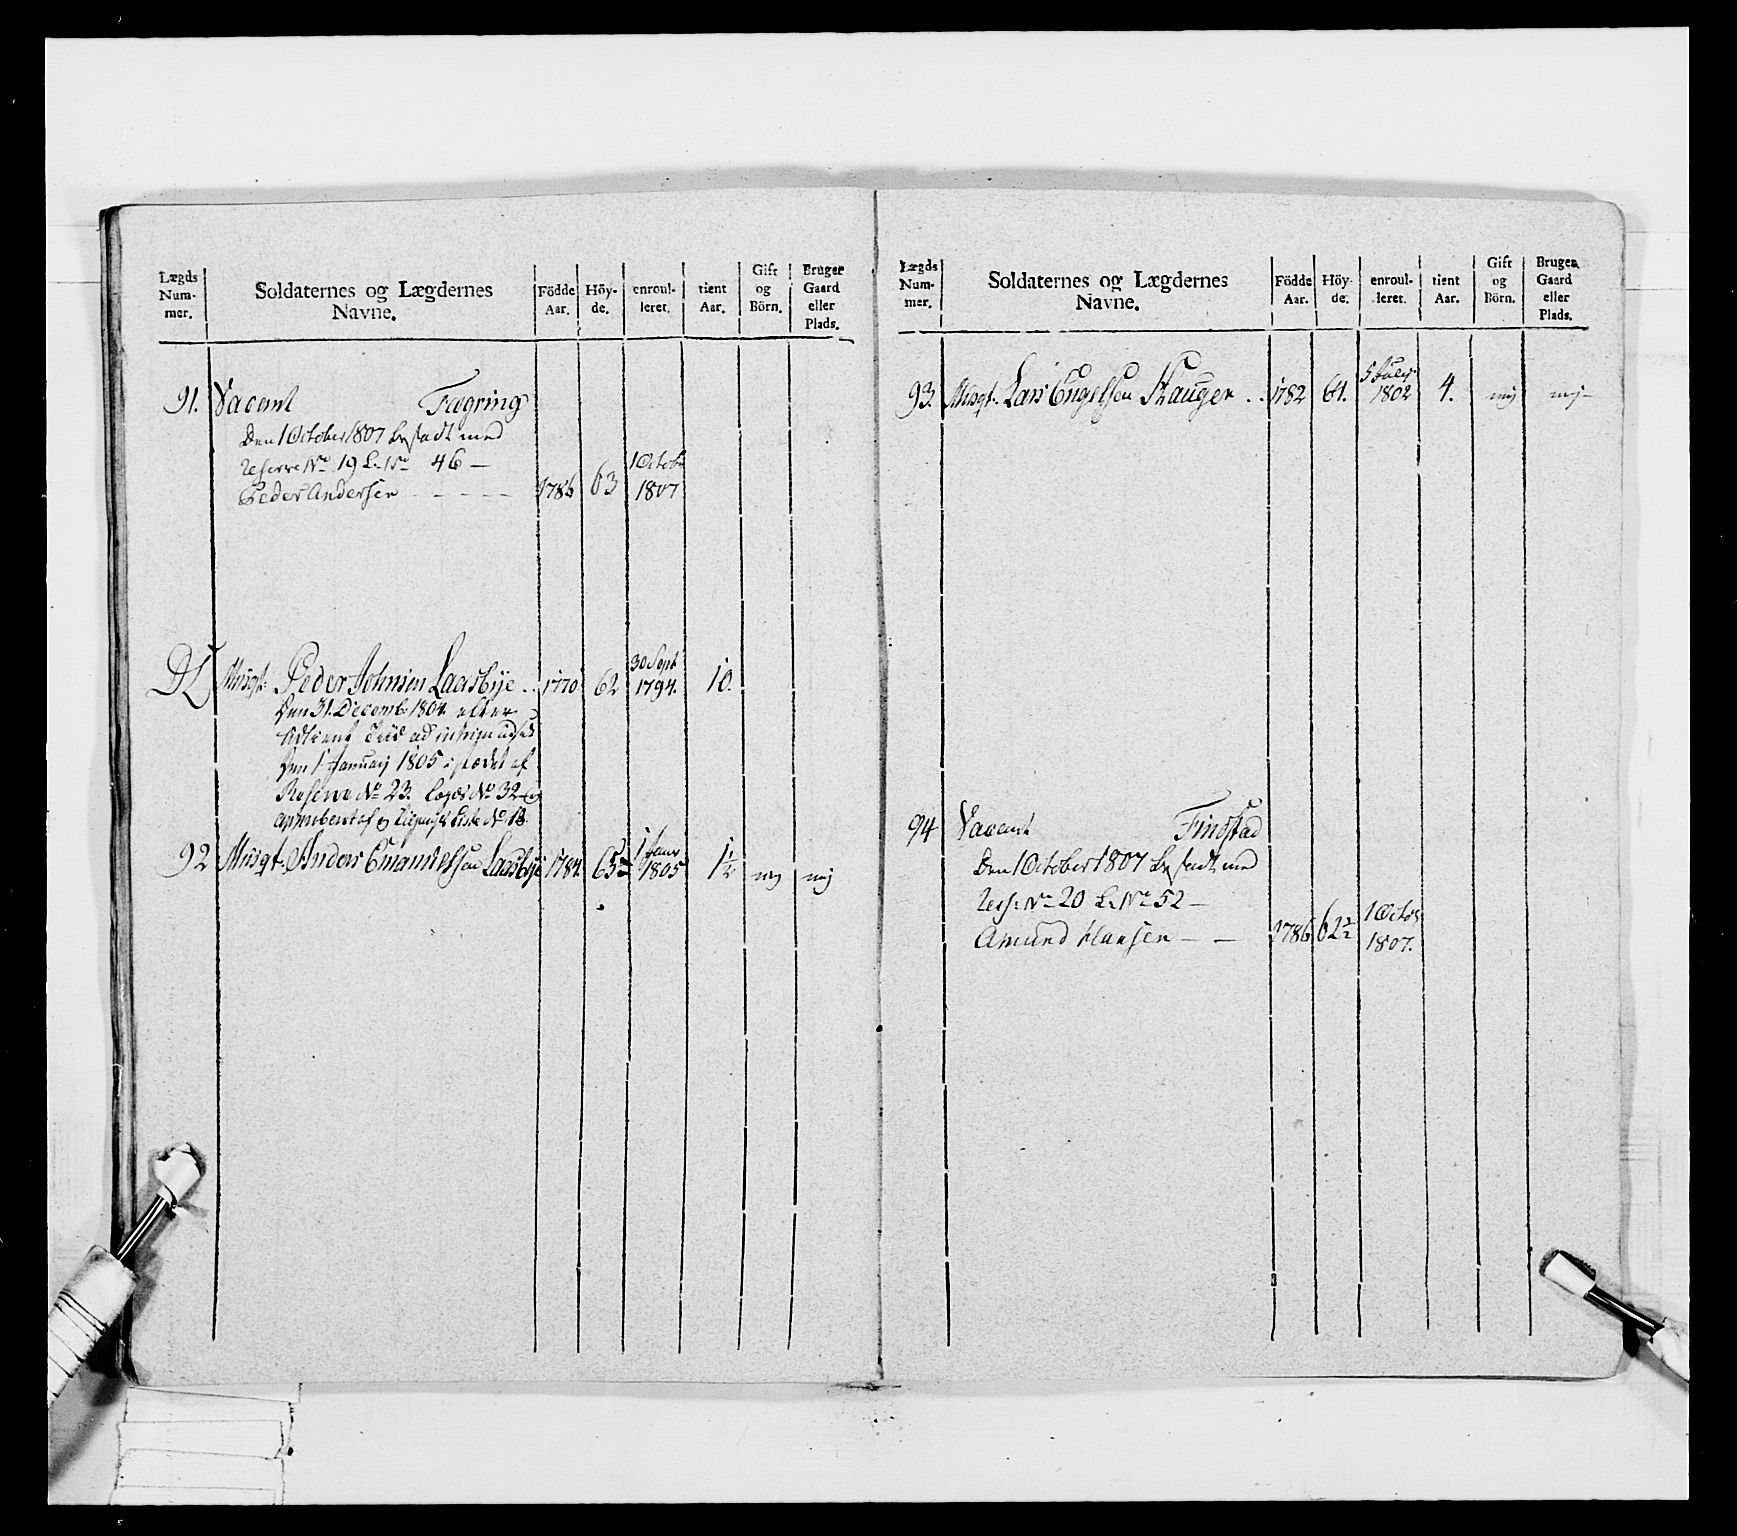 Lægds Num- mer. Soldaternes og Lægdernes Navne. Födde Aar. Höy- de. enroul- leret. tient Aar. Gift og Börn. Bruger Gaard eller Plads.
91. Vacant Fægring
Den 1 October 1807 besadt med
Reserve No 19 L. No 46 —
Peder Andersen - - - - - 1786 63 1 Octobr 1807
Musqt. Peder Johnsen Laasbÿe .. 1770 62 30 Sept 1794. 10.
Den 31. Decemb. 1804 efter
udtient Tiid
Den 1 Januarj 1805 i stædet af
Reserve No 23. Lægds No 32
No 18.
92 Musqt. Anders Emanuelsen Laasbÿe 1784. 65 1 Janr 1805 1½ nej nej
Lægds Num- mer. Soldaternes og Lægdernes Navne. Födde Aar. Höy- de. enroul- leret. tient Aar. Gift og Börn. Bruger Gaard eller Plads.
93. Musqt. Lars Engelsen Hauger . . 1782 64. 5 Julij 1802 4. nej nej-
94 Vacant Finstad
Den 1 October 1807 besadt med
Res: No 20 L. No 52 —
Amund Hansen - - 1786 62½ 1 Octob. 1807.